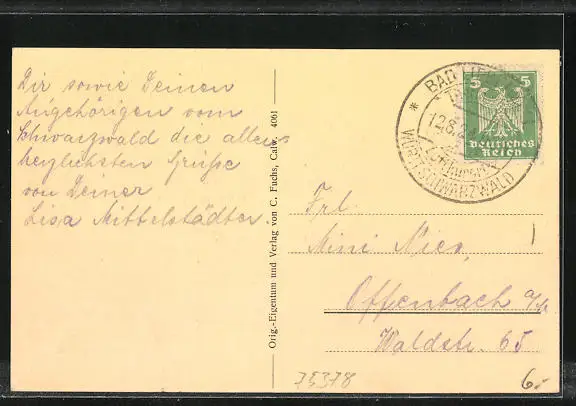 Dir sowie Deinen
Angehörigen vom
Schwarzwald die aller-
herzlichsten Grüße
von Deiner
Lisa Mittelstädter.
Orig.-Eigentum und Verlag von C. Fuchs, Calw. 4061
BAD
12.8.
WÜRTT. SCHWARZWALD
5 5
Deutsches
Reich
Frl.
Mini
Offenbach a/M
Waldstr. 65
75378
6.-